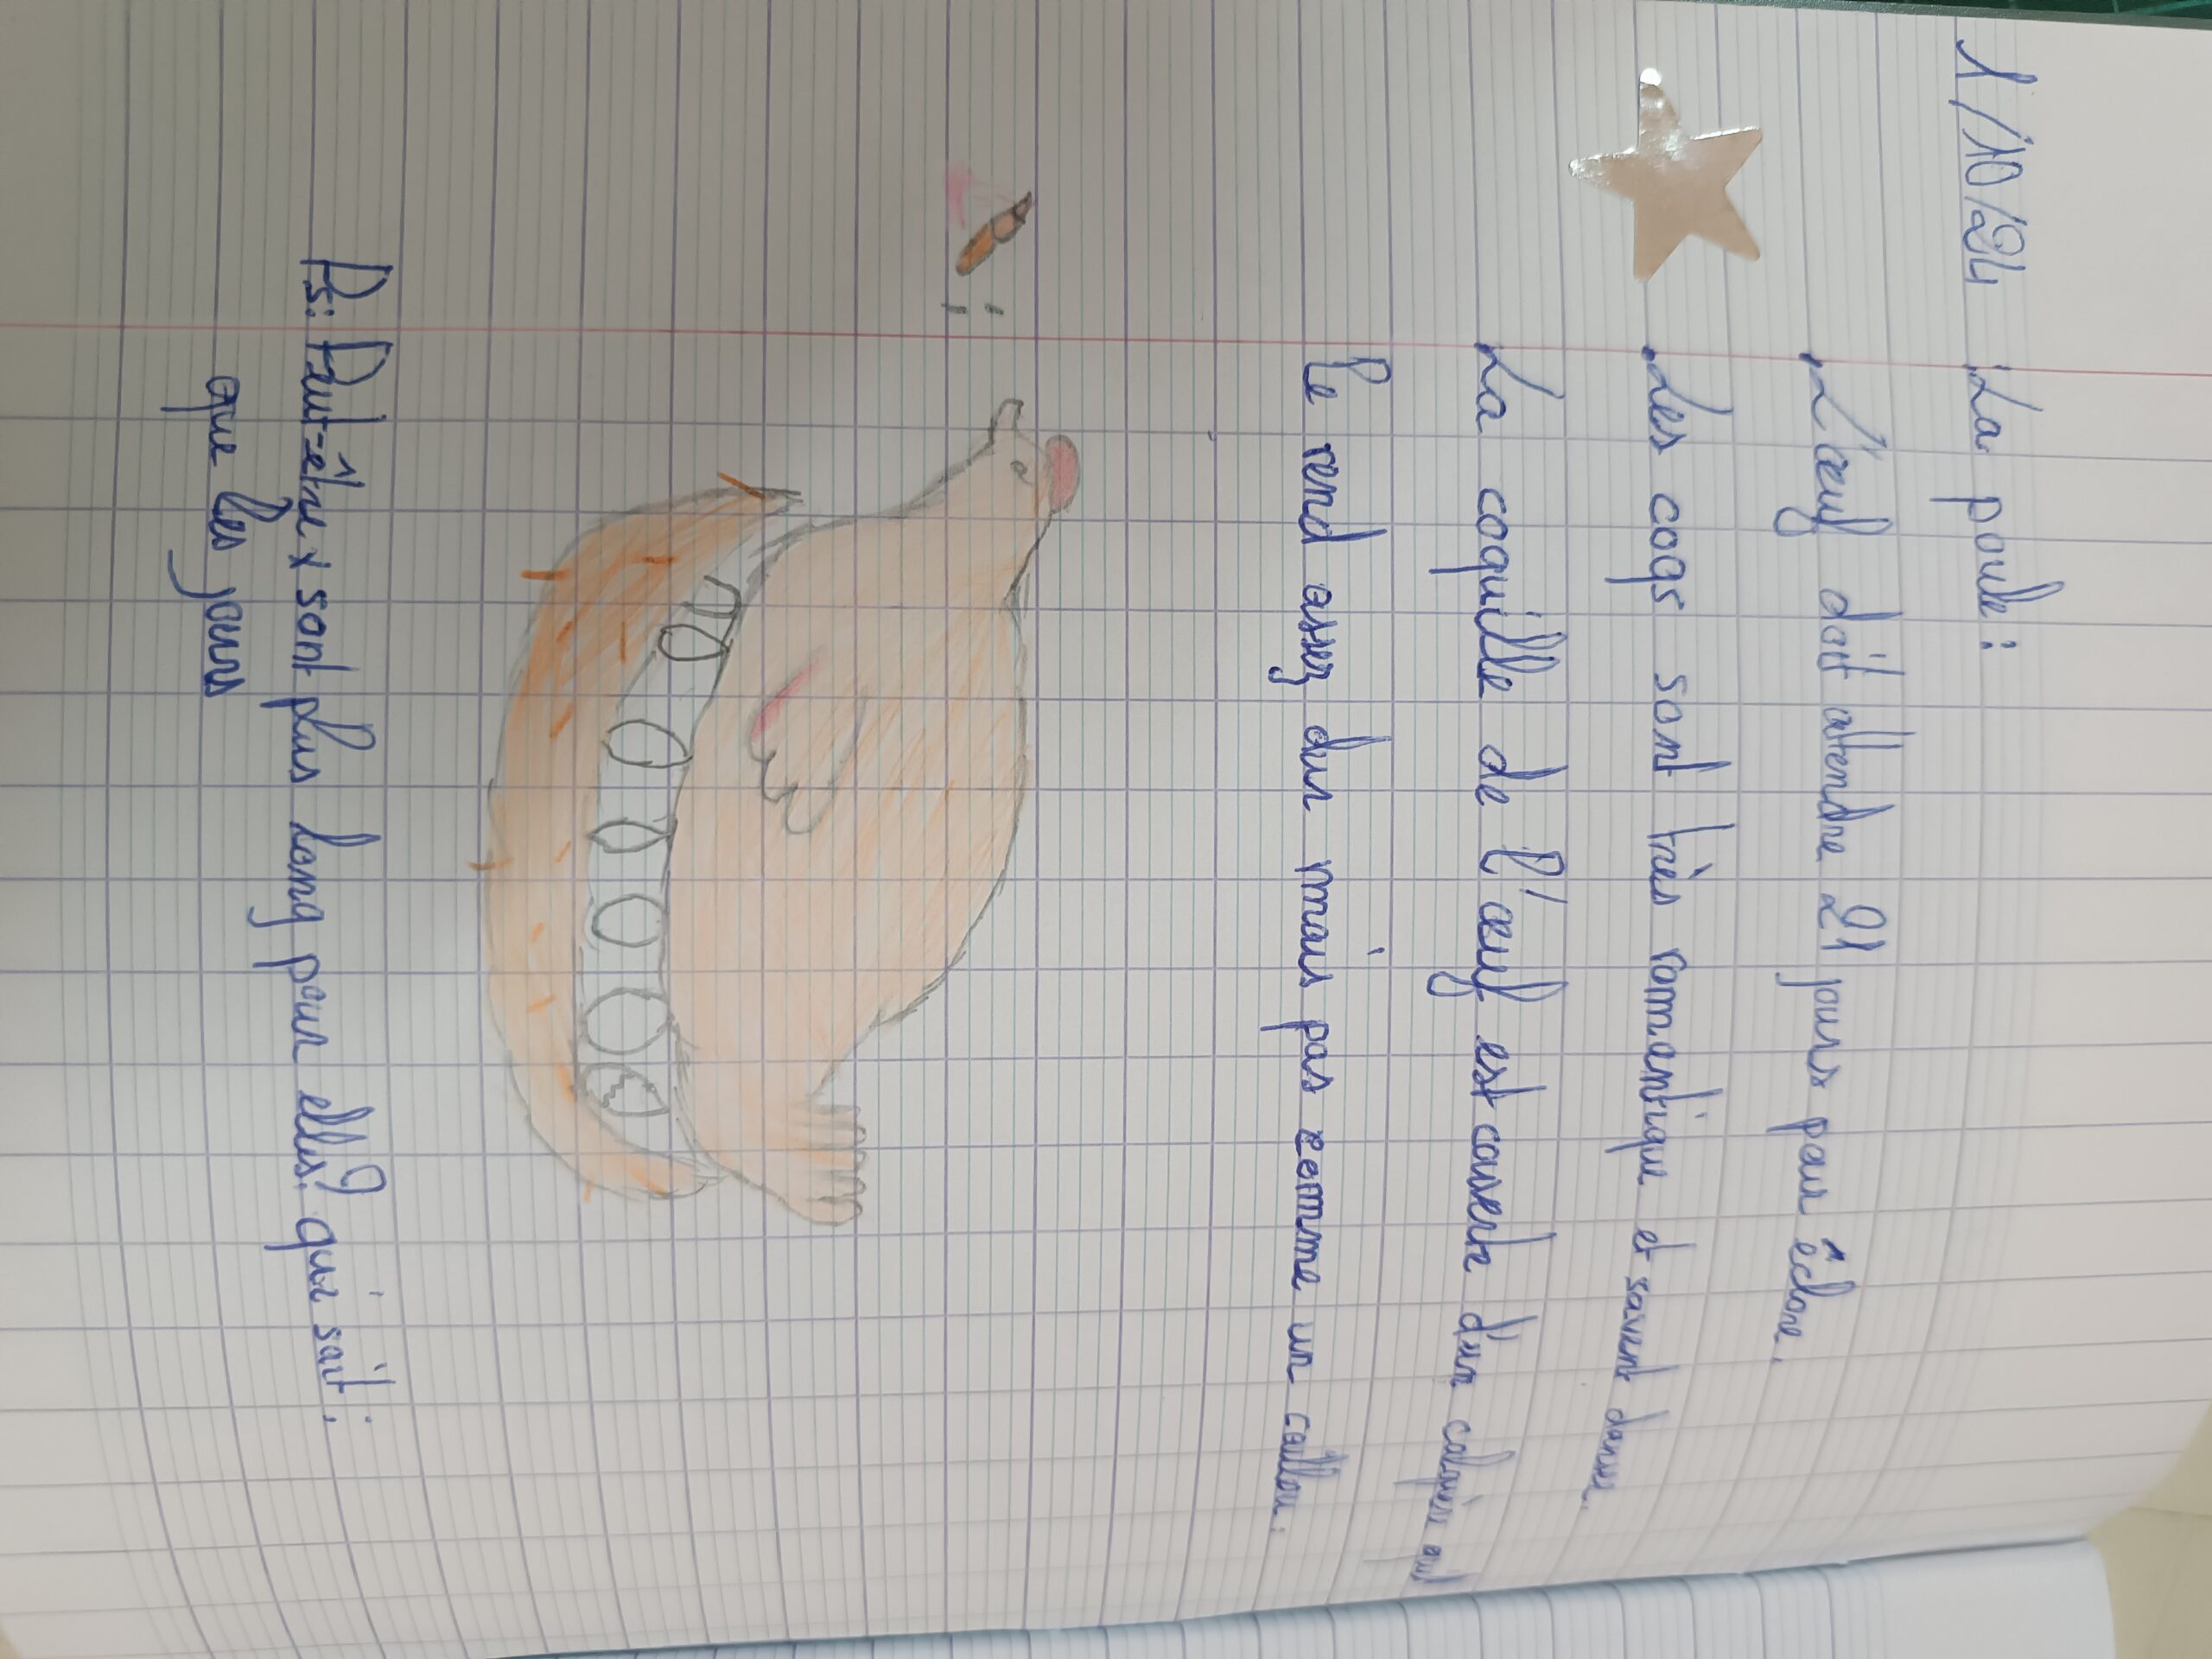 1/10/24 La poule:
L'œuf doit attendre 21 jours pour éclore.
Les coqs sont très romantique et savent danser.
La coquille de l'œuf est couverte d'un calquère qui
le rend assez dur mais pas comme un caillou.
Ps: Peut-être x sont plus long pour elles? qui sait;
que les jours